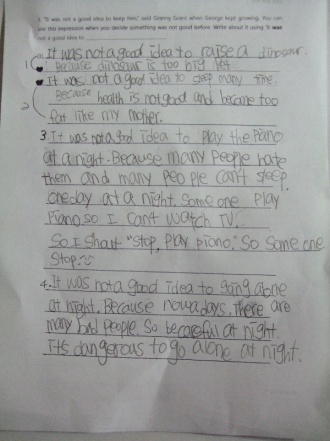 3. "It was not a good idea to keep him," said Granny Grant when George kept growing. You can
use this expression when you decide something was not good before. Write about it using "It was
not a good idea to
1 It was not a good idea to raise a dinosaur.
Because dinosaur is too big pet.
2 It was not a good idea to sleep many time.
Because health is not good and become too
fat like my mother.
3. It was not a good idea to play the piano
at a night. Because many people hate
them and many people can't sleep.
oneday at a night, Some one play
Piano so I can't watch TV.
So I shout "stop, Play piano." So Some one
Stop.
4. It was not a good idea to going alone
at night. Because nowadays, there are
many bad people. So be careful at night.
it's dangerous to go alone at night.